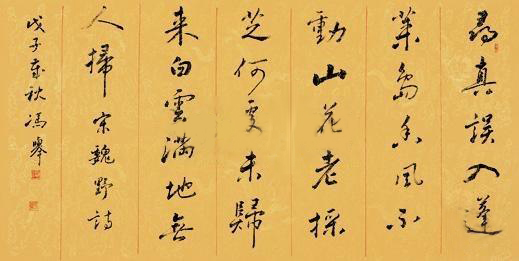 尋真誤入蓬
萊島香風不
動山花老採
芝何處未歸
来白雲滿地無
人掃宋魏野詩
戊子歲秋馮